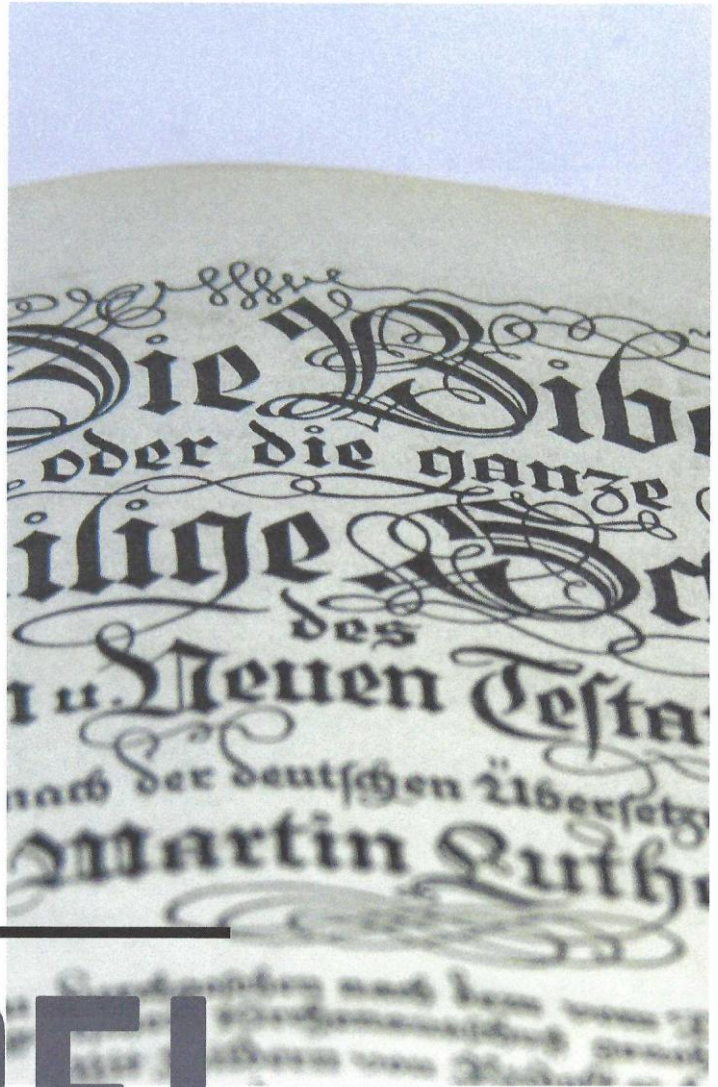 Die Bibe
oder die ganze
ilige Sc
des
n u. Neuen Teſta
nach der deutſchen Überſetz
Martin Luth
nach dem vom